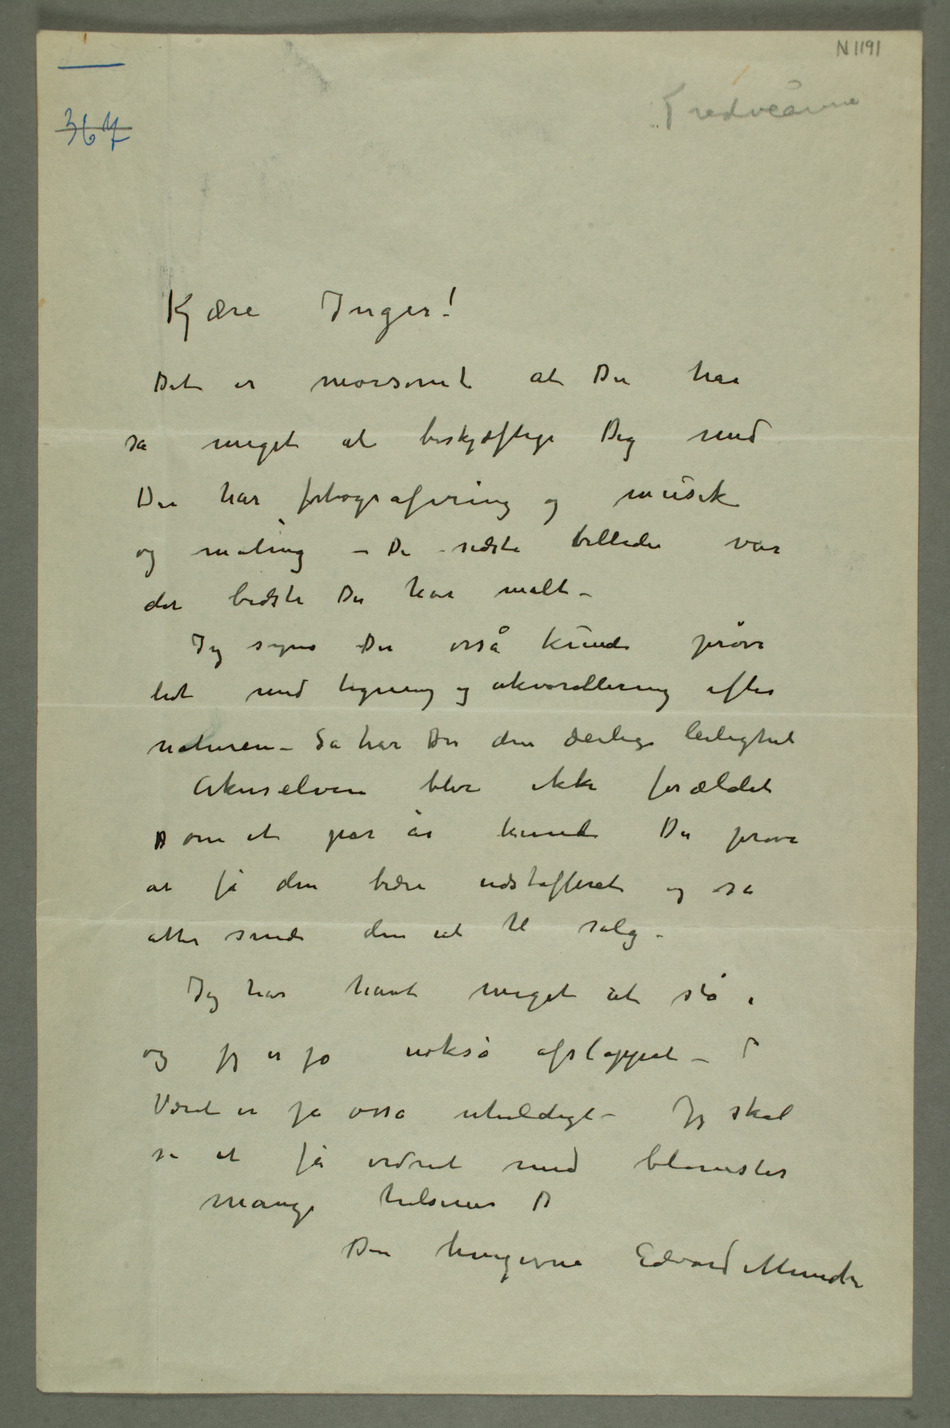 N 1191
367
Kjære Inger!
Det er morsomt at Du har
så meget at beskjæftige Dig med
Du har fotografering og musik
og maling – De sidste billeder var
det bedste Du har malt –
Jeg synes Du også kunde prøve
lidt med tegning og akvarellering efter
naturen – Så har Du den deilige leilighet
Akerselven blir ikke forældet
om et par år kunde Du prøve
at få den bedre udstafferet og så
atter sende den ut til salg –
Jeg har havt meget at stå i
og jeg er jo nokså afslappet –
Været er jo osså uheldigt – Jeg skal
se at få ordnet med blomster
Mange hilsener
Din hengivne Edvard Munch